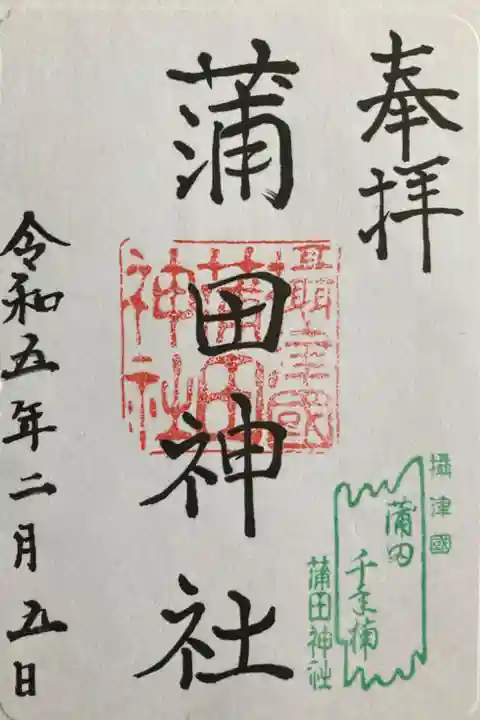 奉拝
攝津國
蒲田
千年楠
蒲田神社
攝津國
蒲田
神社
蒲田神社
令和五年二月五日